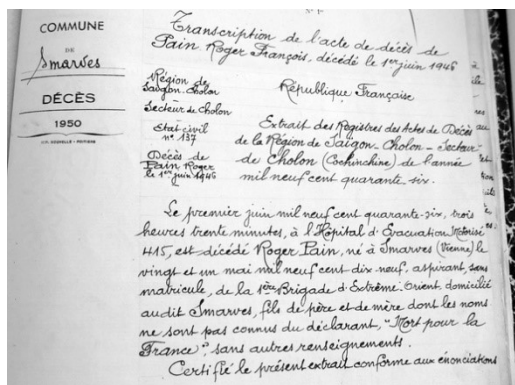 COMMUNE
DE
Smarves
DÉCÈS
1950
Transcription de l'acte de décès de
Pain Roger François, décédé le 1er juin 1946
Région de
Saïgon-Cholon
Secteur de Cholon
Etat civil
n° 137
Décès de
Pain Roger
le 1er juin 1946
République Française
Extrait des Registres des Actes de Décès
de la Région de Saïgon-Cholon-Secteur
de Cholon (Cochinchine) de l'année
mil neuf cent quarante six.
Le premier juin mil neuf cent quarante-six, trois
heures trente minutes, à l'Hôpital d'Évacuation Motorisé
415, est décédé Roger Pain, né à Smarves (Vienne) le
vingt et un mai mil neuf cent dix-neuf, aspirant, sans
matricule, de la 1ère Brigade d'Extrême-Orient, domicilié
audit Smarves, fils de père et de mère dont les noms
ne sont pas connus du déclarant, "Mort pour la
France", sans autres renseignements.
Certifié le présent extrait conforme aux énonciations